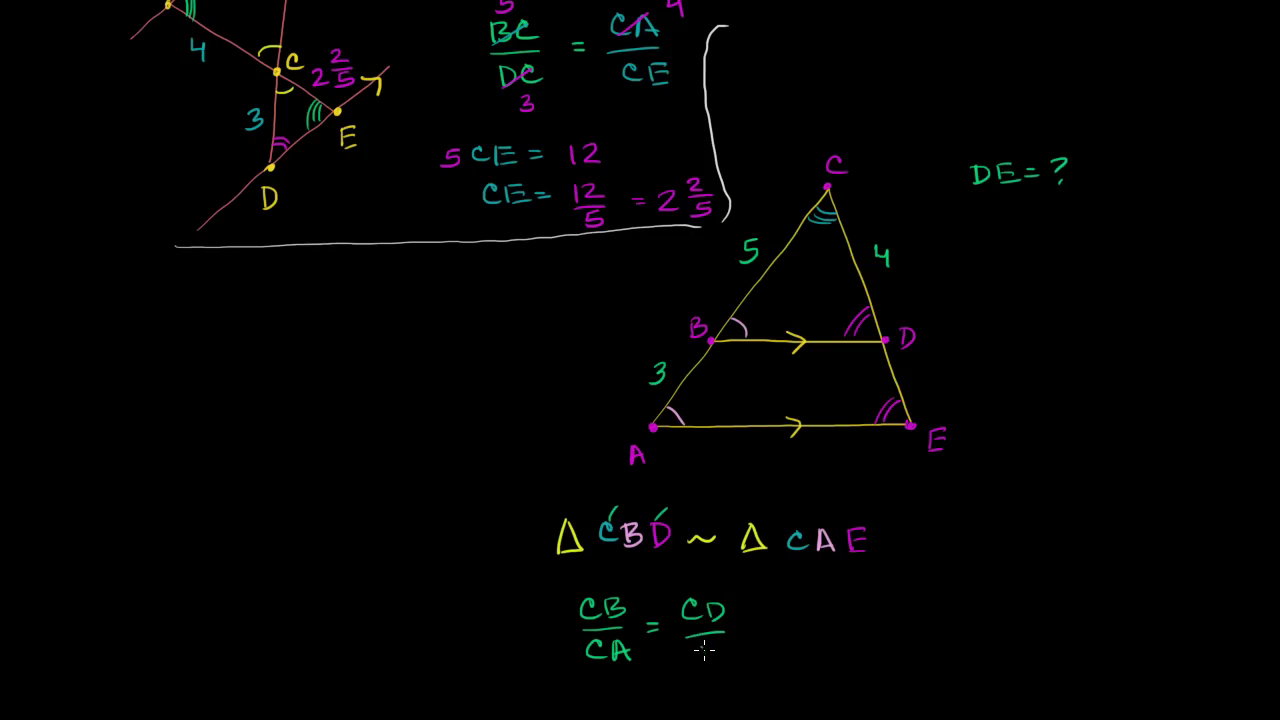 4
C
2 2/5
3
E
D
5 4
BC/DC = CA/CE
3
5 CE = 12
CE = 12/5 = 2 2/5
DE = ?
C
5
4
B
D
3
A
E
Δ CBD ~ Δ CAE
CB/CA = CD